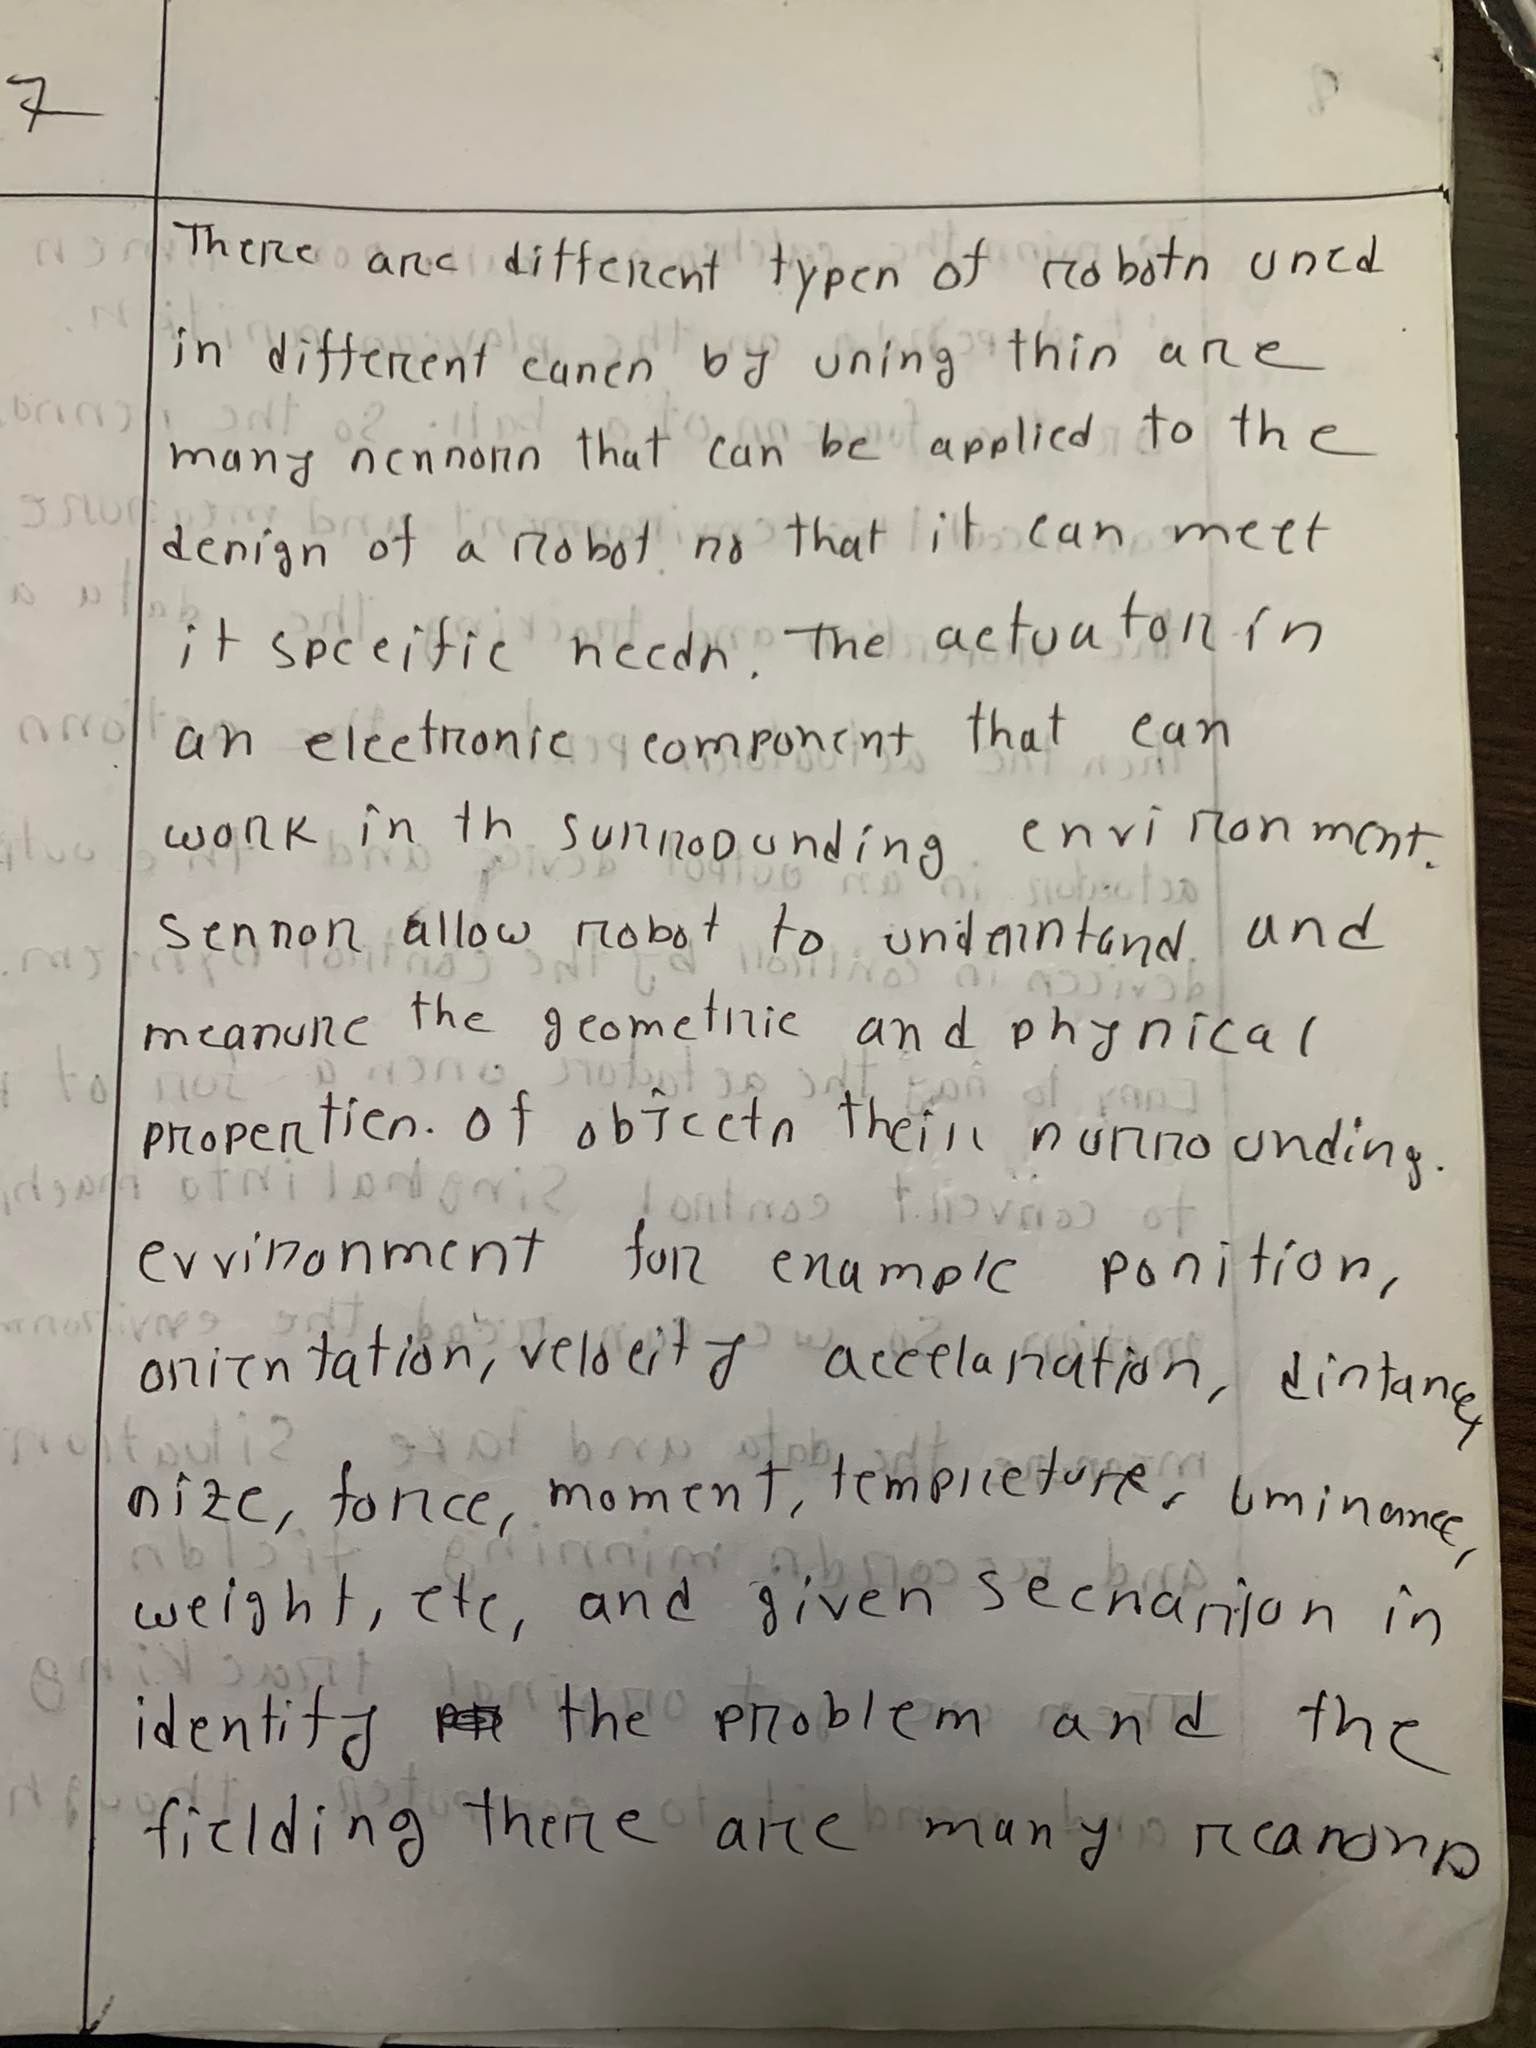 7
There are different types of robots used
in different cases by using this are
many sensors that can be applied to the
design of a robot so that it can meet
it specific needs. The actuator is
an electronic component that can
work in th surroounding environment.
Sensor allow robot to understand and
measure the geometric and physical
properties. of objects their surrounding.
evvironment for example position,
orientation, velocity accelaration, distance,
size, force, moment, tempreture, uminance,
weight, etc, and given secnarion is
identify the problem and the
fielding there are many reasons